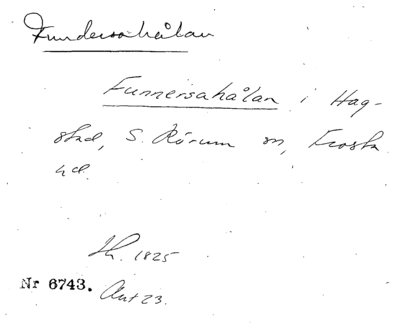 Fundersahålan
Funnersahålan i Hag-
stad, S. Rörum sn, Frosta
hd.
Sk. 1825
Nr 6743. Ant 23.